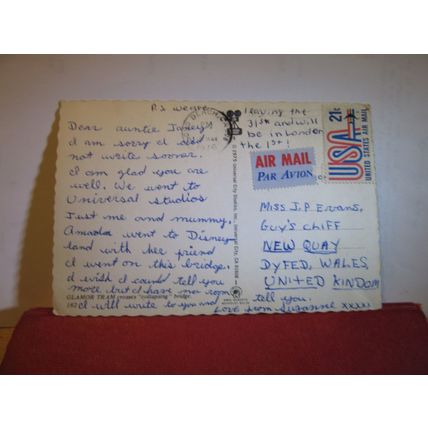 P.S we are leaving the
31st and will
be in London
the 1st!
Dear auntie Janey,
I am sorry I did
not write sooner.
I am glad you are
well. We went to
Universal studios
Just me and mummy.
Amanda went to Disney-
land with her friend
I went on this bridge.
I wish I could tell you
more but I have no room
GLAMOR TRAM crosses "collapsing" bridge.
tell you.
I will write to you and
Love from Suzanne xxxxx
© 1975 Universal City Studios, Inc.
AIR MAIL
PAR AVION
21c
USA
UNITED STATES AIR MAIL
Miss J.P. Evans,
Guy's Cliff
NEW QUAY
DYFED, WALES,
UNITED KINGDOM